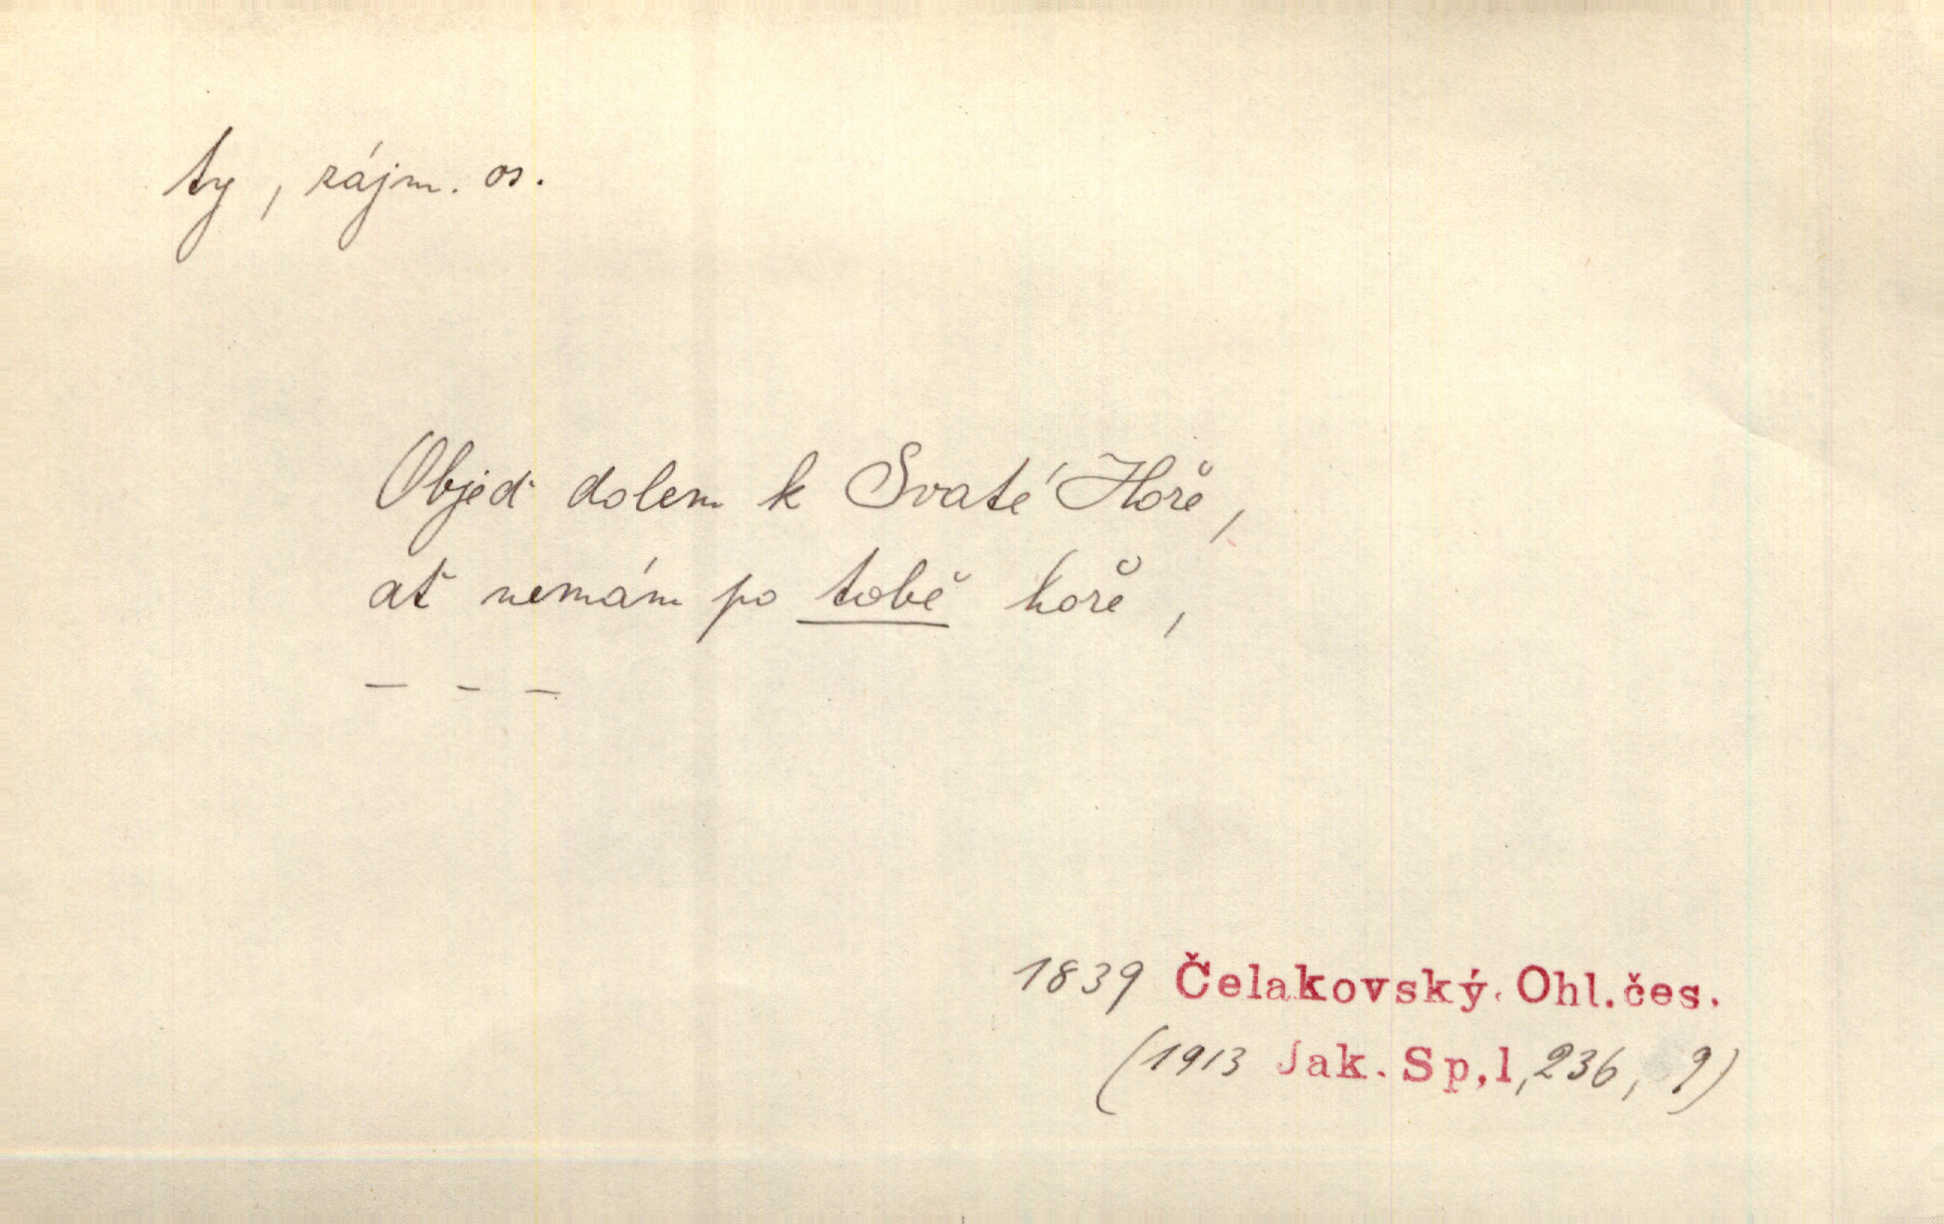 ty, zájm. os.
Objeď dolem k Svaté Hoře,
ať nemám po tobě hoře,
— - –
1839 Čelakovský. Ohl.čes.
(1913 Jak. Sp,1,236, 9)